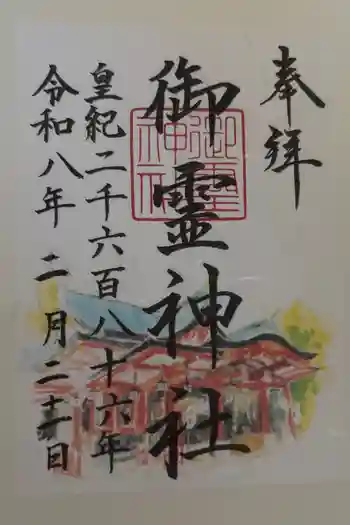 奉拝
御靈神社
皇紀二千六百八十六年
令和八年 二月二十一日